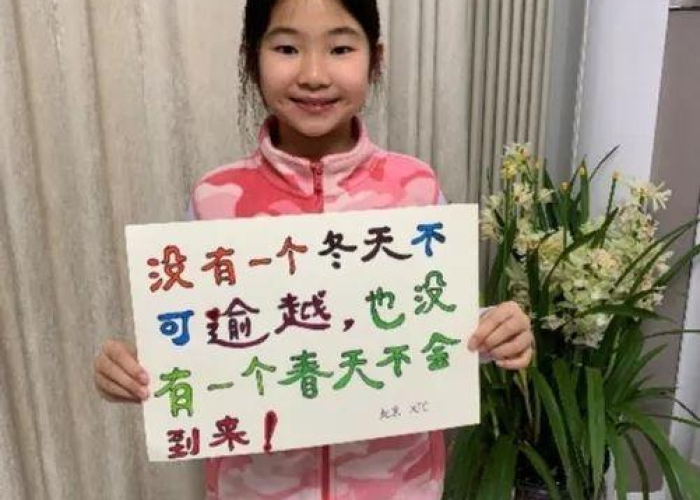 没有一个冬天不
可逾越，也没
有一个春天不会
到来！
北京